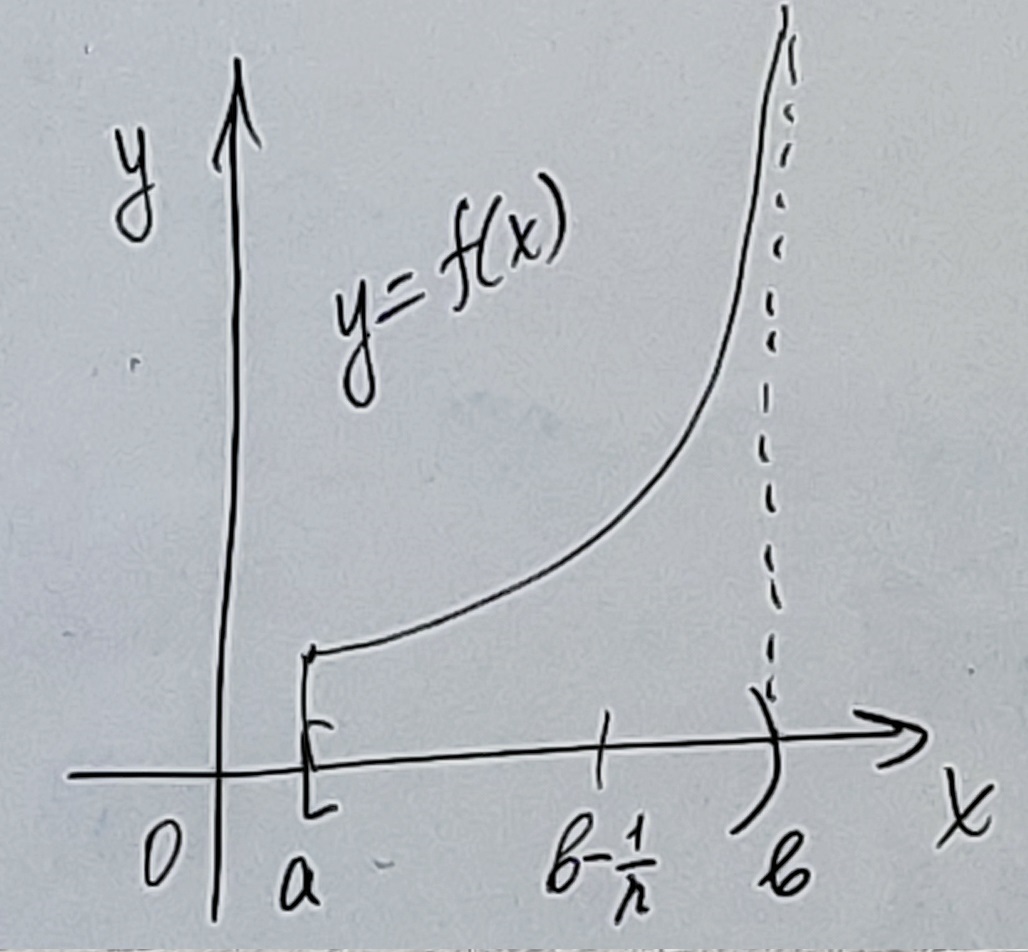 y
y = f(x)
0
a
b - 1/n
b
x